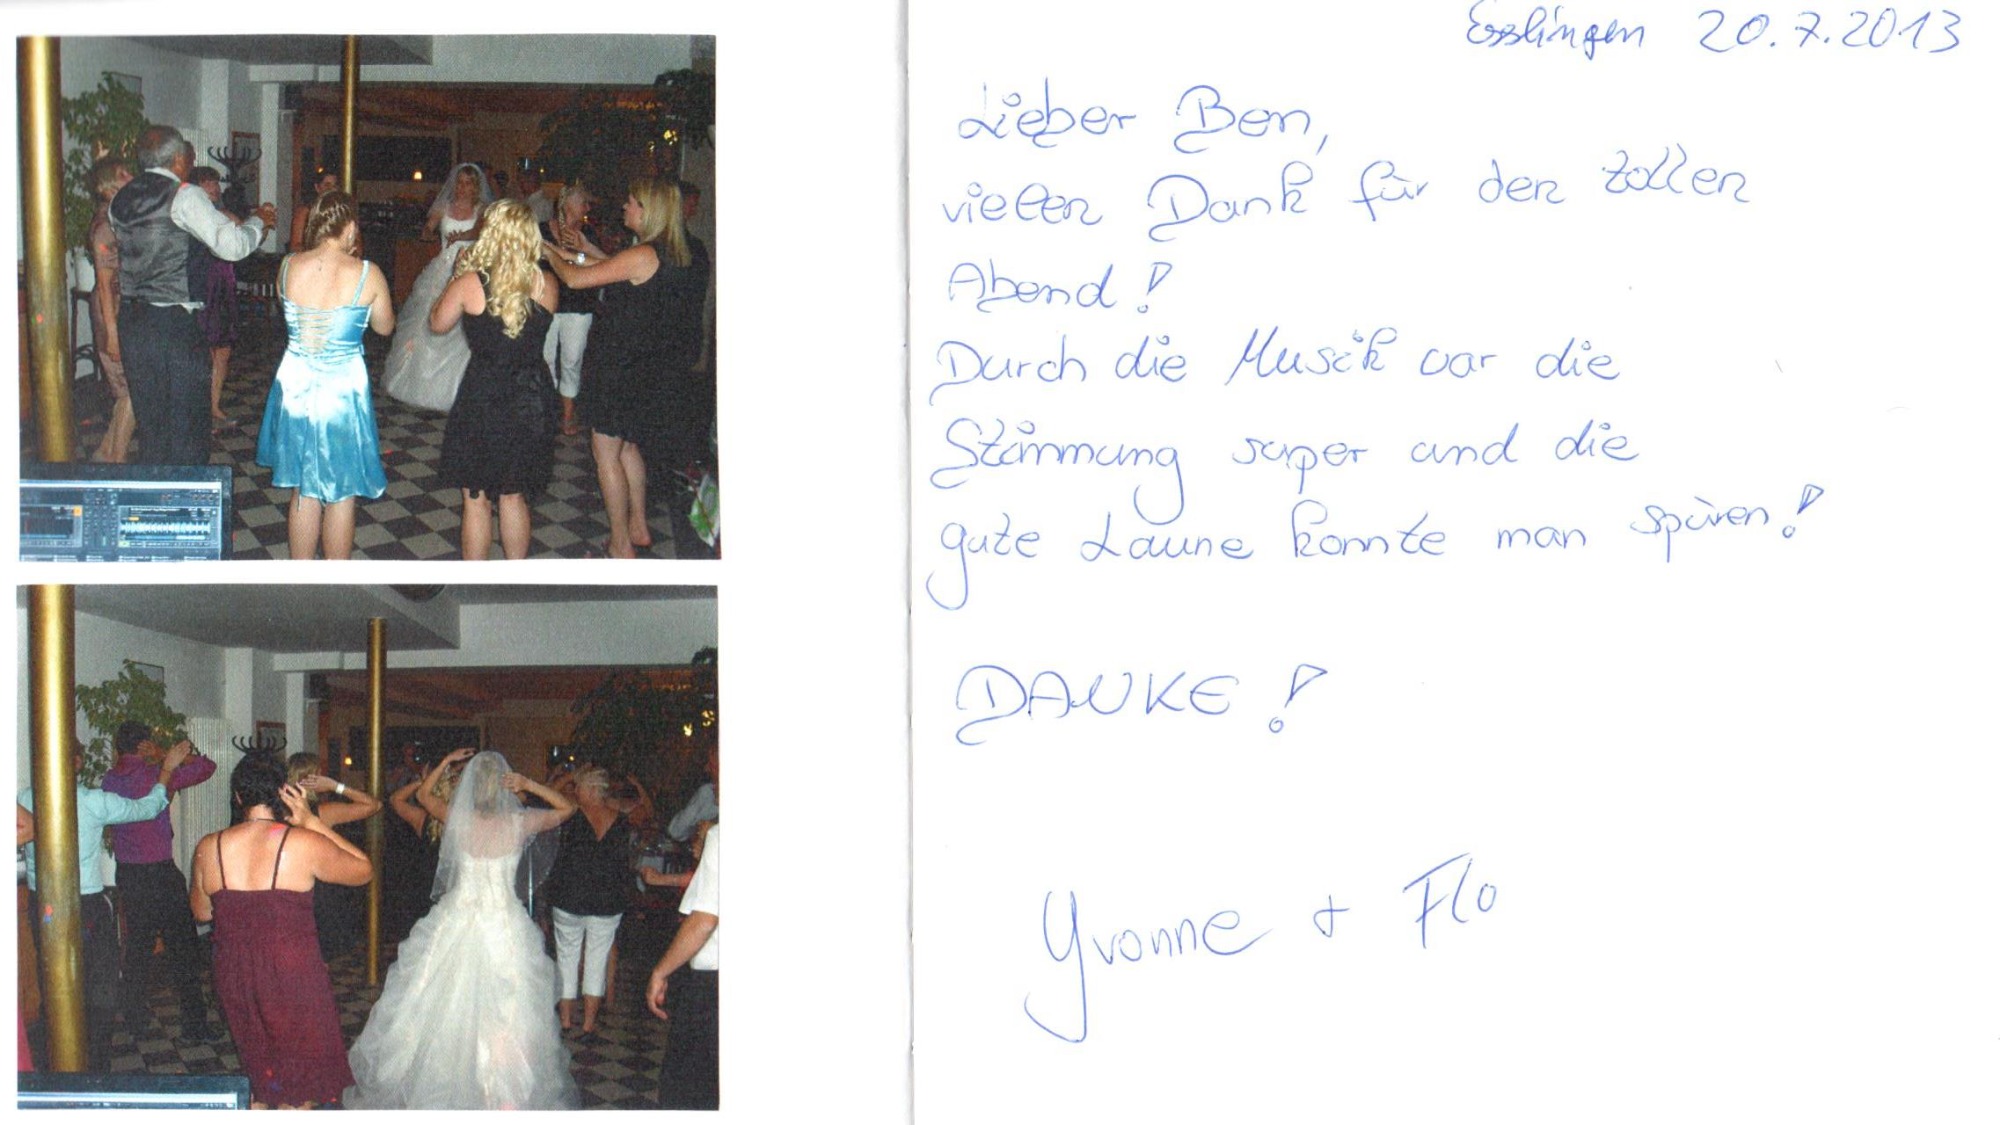 Esslingen 20.7.2013
Lieber Ben,
vielen Dank für den tollen
Abend!
Durch die Musik war die
Stimmung super und die
gute Laune konnte man spüren!
DANKE!
Yvonne + Flo